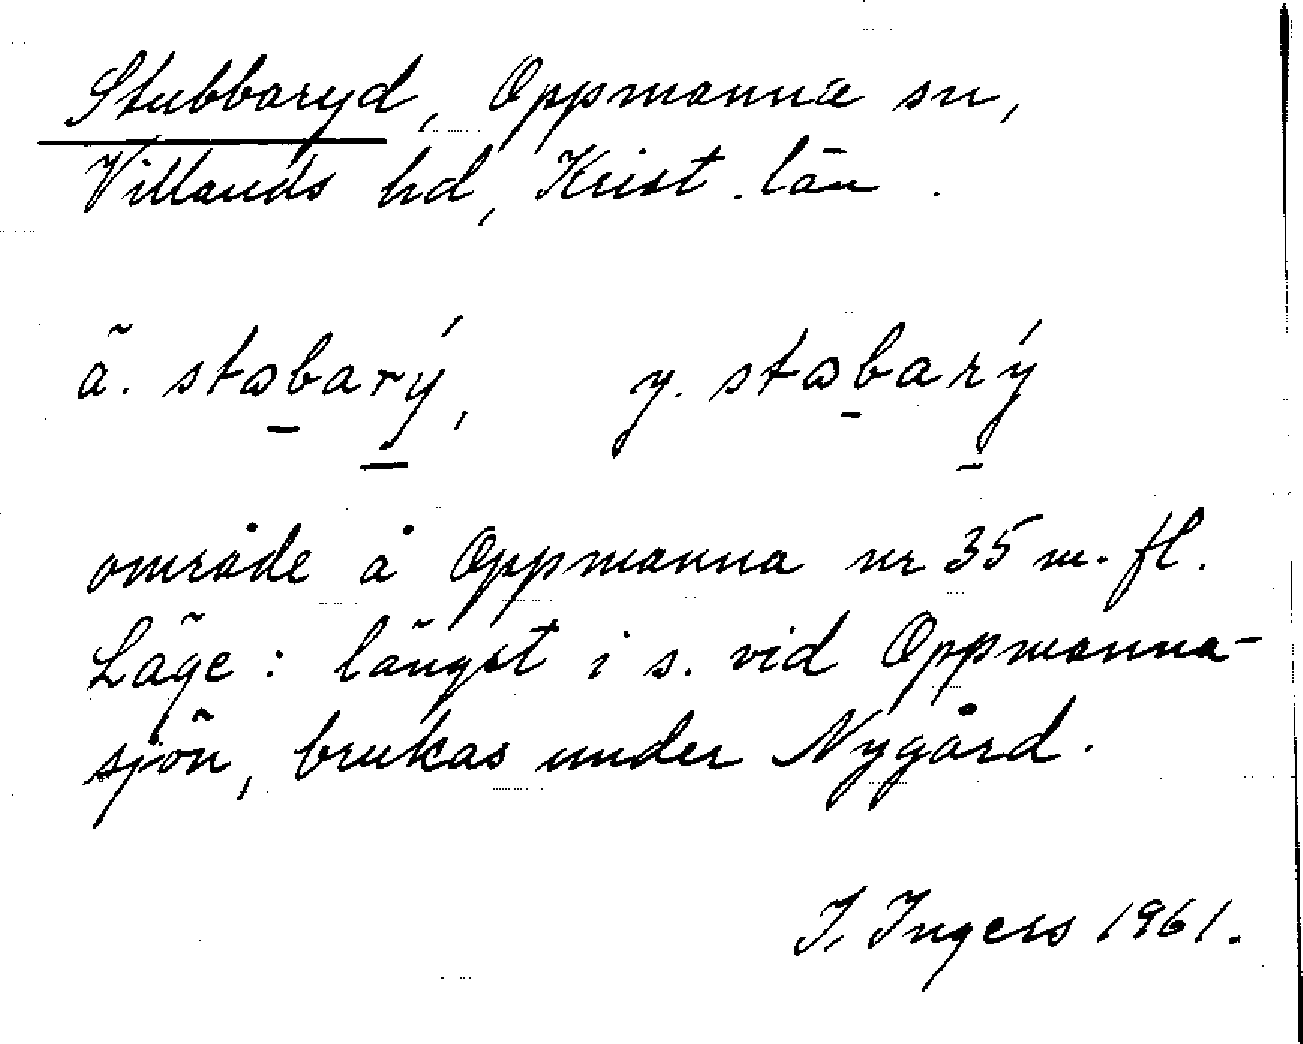 Stubbaryd, Oppmanna sn,
Villands hd, Krist. län.
ä. stωbarý, y. stωbarý
område å Oppmanna nr 35 m. fl.
Läge: längst i s. vid Oppmanna-
sjön, brukas under Nygård.
I. Ingers 1961.